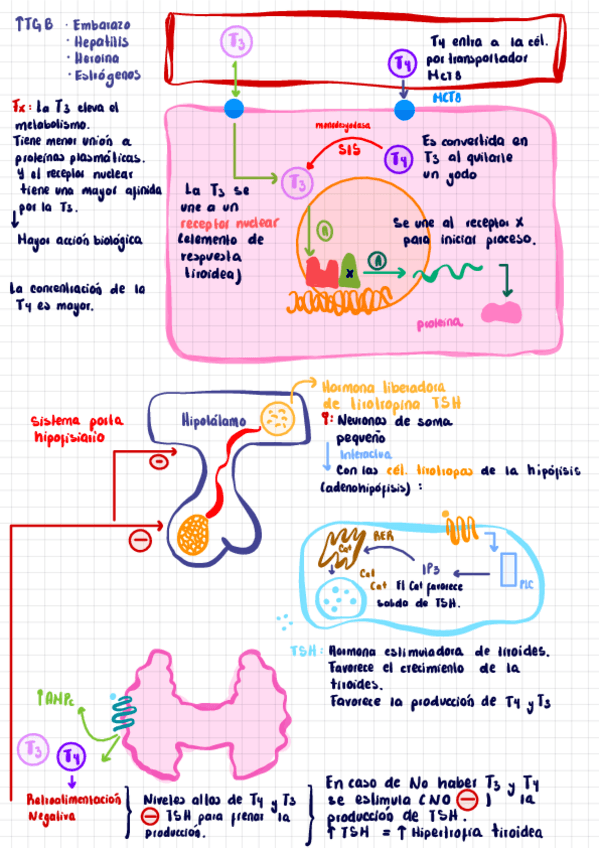 ↑TGB · Embarazo
· Hepatitis
· Heroína
· Estrógenos
T3
T4
T4 entra a la cél.
por transportador
MCT8
MCT8
Tx: La T3 eleva el
metabolismo.
Tiene menor unión a
proteínas plasmáticas.
Y al receptor nuclear
tiene una mayor afinida
por la T3.
↓
Mayor acción biológica
La concentración de la
T4 es mayor.
monodeyodasa
5'I5
T4
T3
Es convertida en
T3 al quitarle
un yodo
La T3 se
une a un
receptor nuclear
(elemento de
respuesta
tiroidea)
Se une al receptor X
para iniciar proceso.
A
A
x
proteína
Hormona liberadora
de tirotropina TSH
Sistema porta
hipofisiario
Hipotálamo
: Neuronas de soma
pequeño
↓ Interactua
Con las cél. tirotropas de la hipófisis
(adenohipófisis) :
RER
Ca+
IP3
PLC
Ca+
Ca+ El Ca+ favorece
salida de TSH.
TSH: Hormona estimuladora de tiroides.
Favorece el crecimiento de la
tiroides.
Favorece la producción de T4 y T3
↑AMPc
T3
T4
Retroalimentación
Negativa
Niveles altos de T4 y T3
⊖ TSH para frenar la
producción.
En caso de No haber T3 y T4
se estimula (NO ⊖) la
producción de TSH.
↑ TSH = ↑ Hipertrofia tiroidea